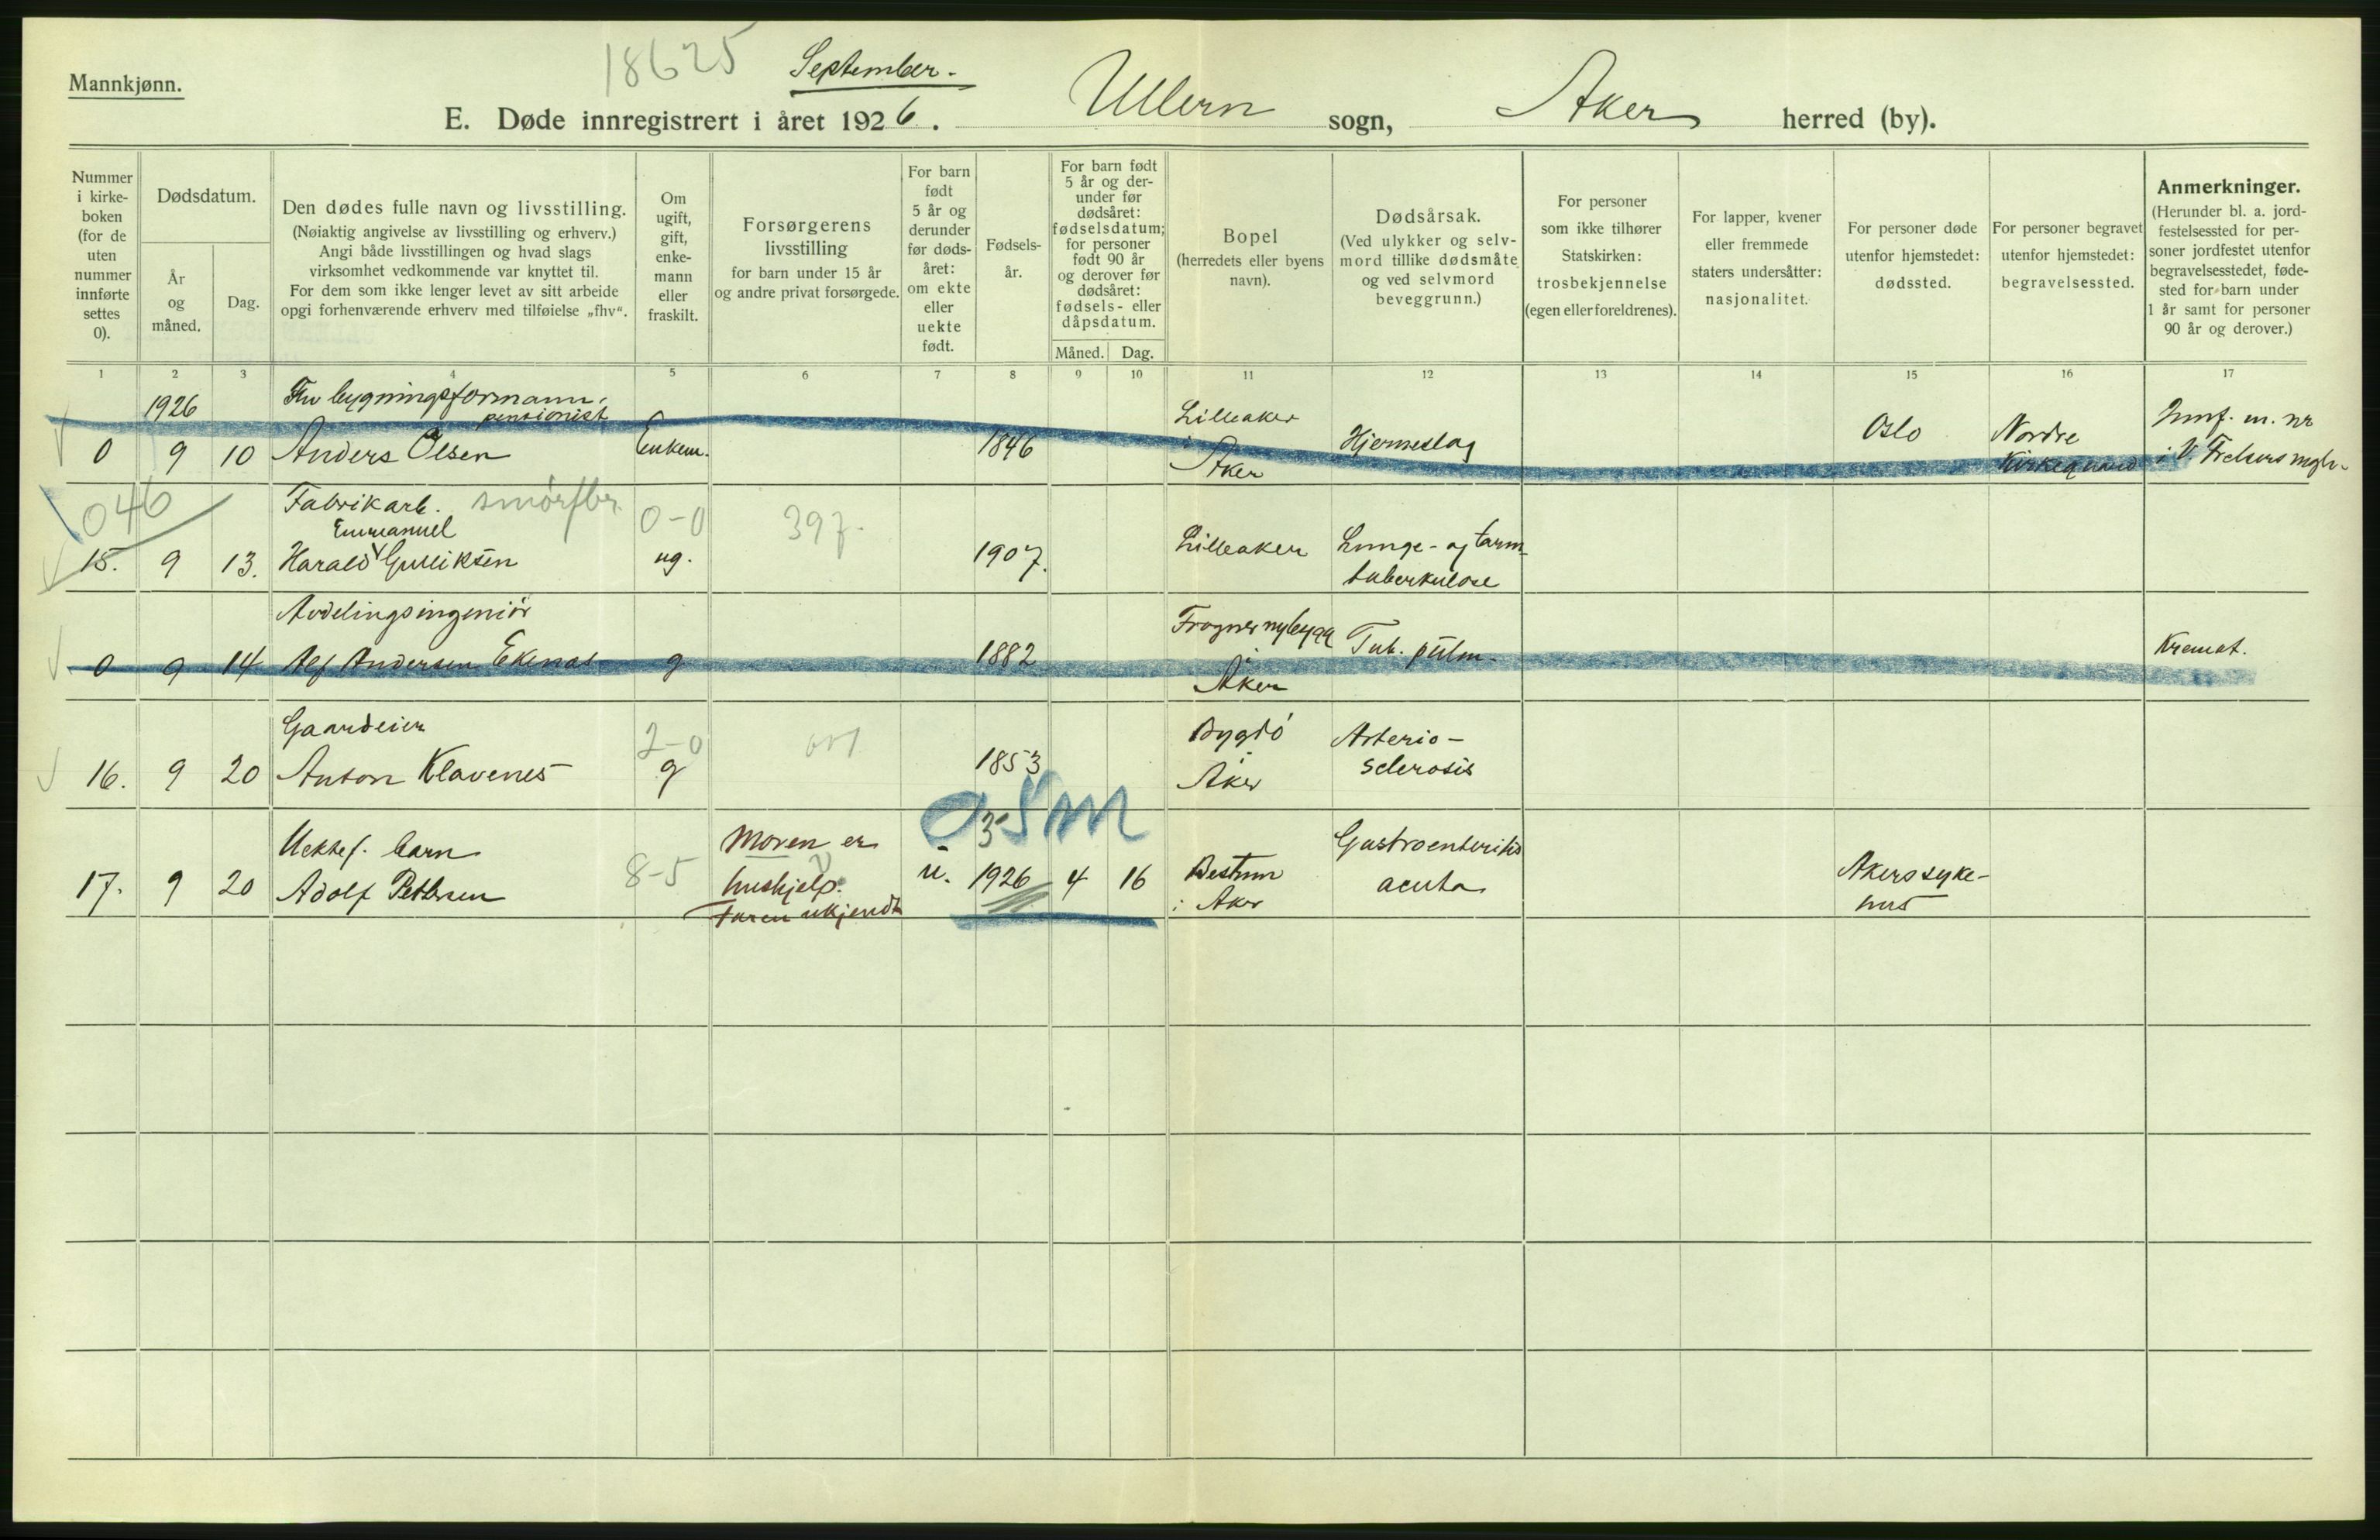 18625
September.
Mannkjønn.
E. Døde innregistrert i året 1926. Ullern sogn, Aker herred (by).
Nummer i kirke-boken (for de uten nummer innførte settes 0).
Dødsdatum.
År og måned.
Dag.
Den dødes fulle navn og livsstilling.
(Nøiaktig angivelse av livsstilling og erhverv.)
Angi både livsstillingen og hvad slags
virksomhet vedkommende var knyttet til.
For dem som ikke lenger levet av sitt arbeide
opgi forhenværende erhverv med tilføielse „fhv“.
Om ugift, gift, enke-mann eller fraskilt.
Forsørgerens
livsstilling
for barn under 15 år
og andre privat forsørgede.
For barn født 5 år og derunder før døds-året: om ekte eller uekte født.
Fødsels-år.
For barn født 5 år og der-under før dødsåret: fødselsdatum; for personer født 90 år og derover før dødsåret: fødsels- eller dåpsdatum.
Måned. Dag.
Bopel
(herredets eller byens
navn).
Dødsårsak.
(Ved ulykker og selv-
mord tillike dødsmåte
og ved selvmord
beveggrunn.)
For personer
som ikke tilhører
Statskirken:
trosbekjennelse
(egen eller foreldrenes).
For lapper, kvener
eller fremmede
staters undersåtter:
nasjonalitet.
For personer døde
utenfor hjemstedet:
dødssted.
For personer begravet
utenfor hjemstedet:
begravelsessted.
Anmerkninger.
(Herunder bl. a. jord-
festelsessted for per-
soner jordfestet utenfor
begravelsesstedet, føde-
sted for barn under
1 år samt for personer
90 år og derover.)
1 2 3 4 5 6 7 8 9 10 11 12 13 14 15 16 17
1926 Fhv bygningsformann,
pensionist
0 9 10 Anders Olsen Enkem. 1846 Lilleaker i Aker Hjerneslag Oslo Nordre Kirkegaard Innf. m. nr i V.
046 Fabrikarb. smørfbr. 0-0 397.
Emmanuel
15. 9 13. Harald Gulliksen ug. 1907. Lilleaker Lunge- og tarm-
tuberkulose
Avdelingsingeniør
0 9 14 Alf Andersen Ekenas g 1882 Frogner nybygg i Aker Tub. pulm. Kremat.
Gaardeier 2-0
16. 9 20 Anton Klavenes g 1853 Bygdø i Aker Arterio-
sclerosis
05m
3
Uektef. barn Moren er
17. 9 20 Adolf Pettersen 8-5 hushjelp. u. 1926 4 16 Bestum i Aker Gastroenteritis
acuta Akers syke-
hus
Faren ukjendt